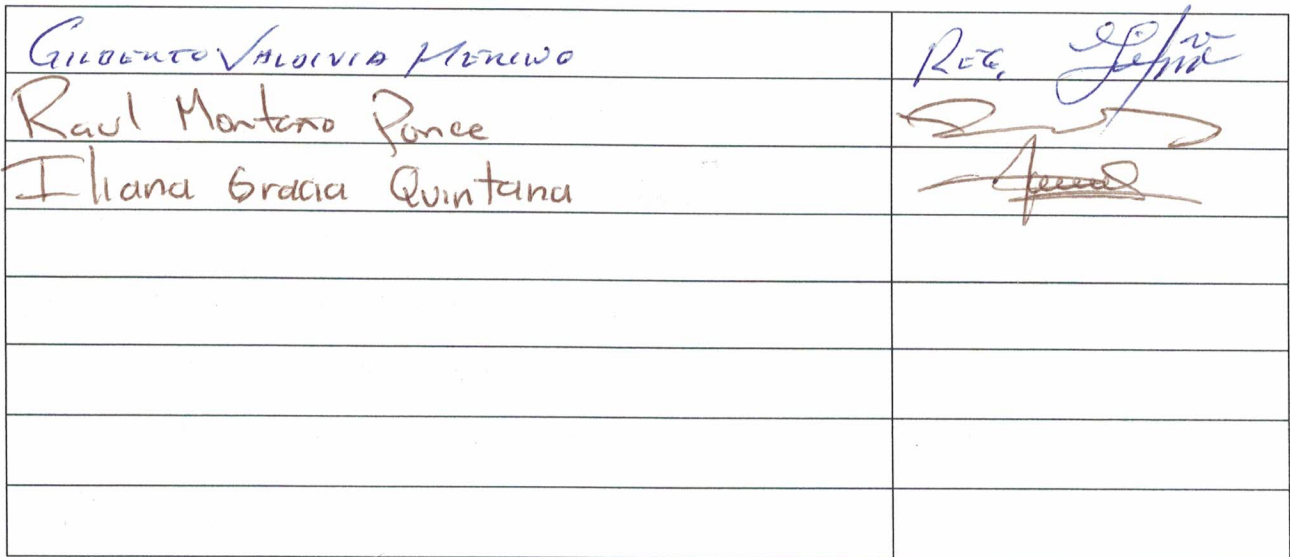 GILBERTO VALDIVIA MERINO
Raul Montano Ponce
Iliana Gracia Quintana